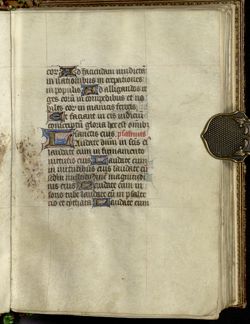 eor Ad faciendam uindictā
in nationibus increpationes
in populis Ad alligandos r
ges eorū in compedibus et no
biles eorū in manicis ferreis
Ut faciant in eis iudiciū
conscriptū gloria hec est omnibꝫ
sanctis eius. psalmus
Laudate dñm in sctis ei
laudate eum in firmamento
uirtutis eius Laudate eum
in uirtutibus eius laudate eū
scdm multitudinē magnitudi
nis eius Laudate eum in
sono tube laudate eū in psalte
rio et cythara Laudate eum